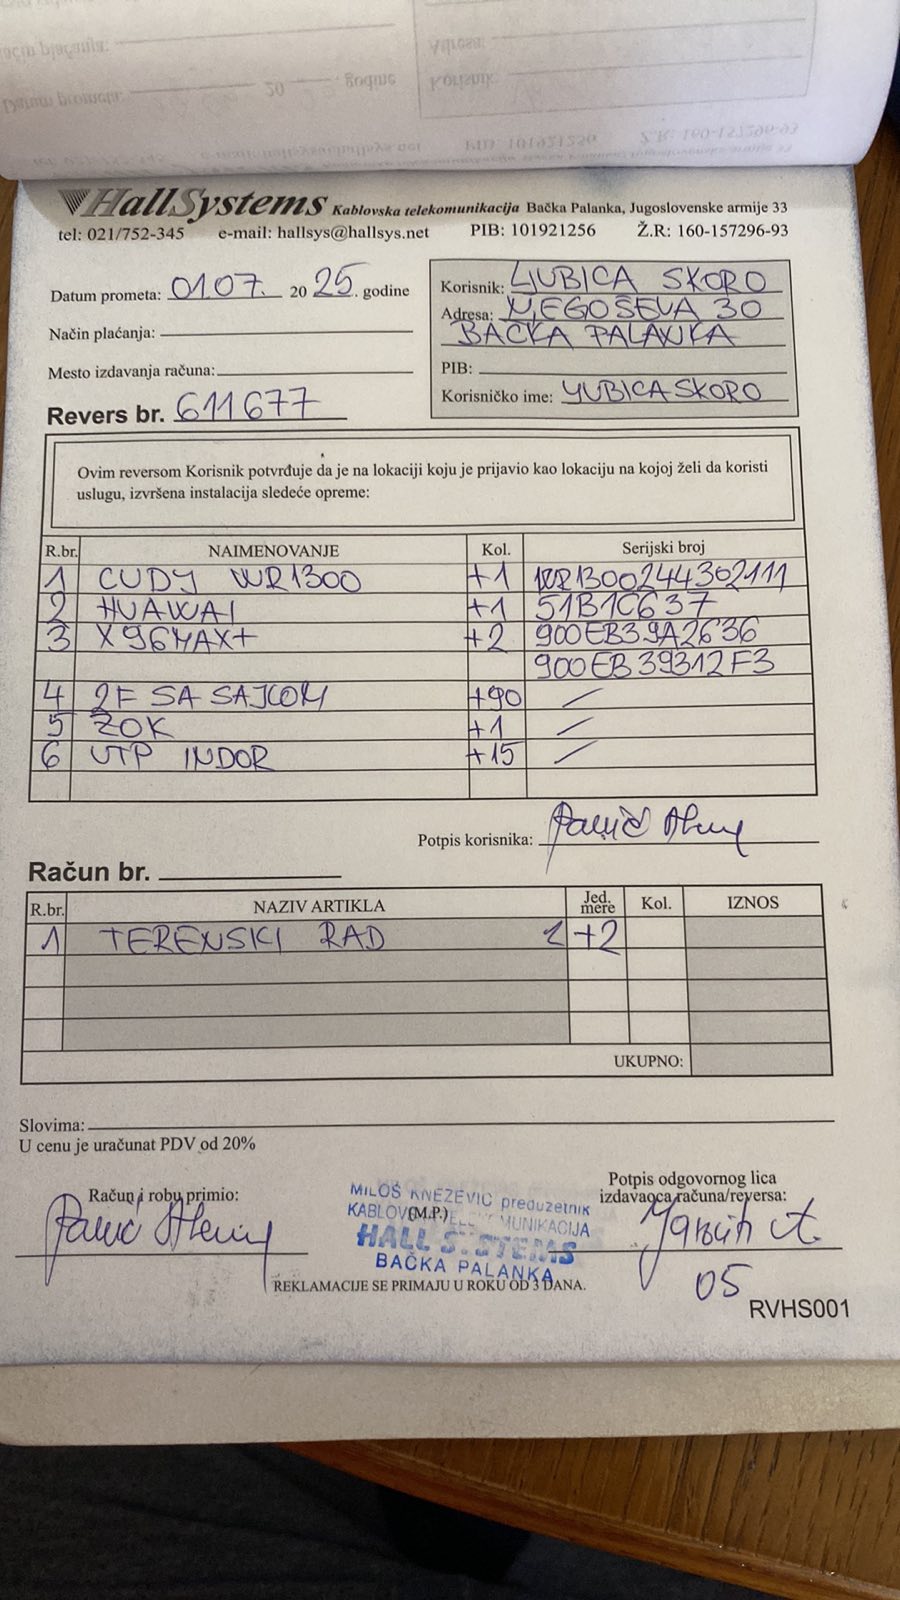 HallSystems Kablovska telekomunikacija Bačka Palanka, Jugoslovenske armije 33
tel: 021/752-345 e-mail: hallsys@hallsys.net PIB: 101921256 Ž.R: 160-157296-93
Datum prometa: 01.07. 20 25. godine
Način plaćanja:
Mesto izdavanja računa:
Revers br. 611677
Korisnik: LJUBICA SKORO
Adresa: NJEGOŠEVA 30
BAČKA PALANKA
PIB:
Korisničko ime: LJUBICASKORO
Ovim reversom Korisnik potvrđuje da je na lokaciji koju je prijavio kao lokaciju na kojoj želi da koristi
uslugu, izvršena instalacija sledeće opreme:
R.br. NAIMENOVANJE Kol. Serijski broj
1 CUDY WR1300 +1 WR1300244302111
2 HUAWAI +1 51B1C637
3 X96MAX+ +2 900EB39A2636
900EB39312F3
4 2F SA SAJLOM +90 /
5 ZOK +1 /
6 UTP INDOR +15 /
Potpis korisnika:
Račun br.
R.br. NAZIV ARTIKLA Jed. mere Kol. IZNOS
1 TERENSKI RAD +2
UKUPNO:
Slovima:
U cenu je uračunat PDV od 20%
Račun i robu primio:
MILOŠ KNEŽEVIĆ preduzetnik
KABLOVSKA TELEKOMUNIKACIJA
(M.P.)
HALL SYSTEMS
BAČKA PALANKA
Potpis odgovornog lica
izdavaoca računa/reversa:
05
REKLAMACIJE SE PRIMAJU U ROKU OD 3 DANA.
RVHS001